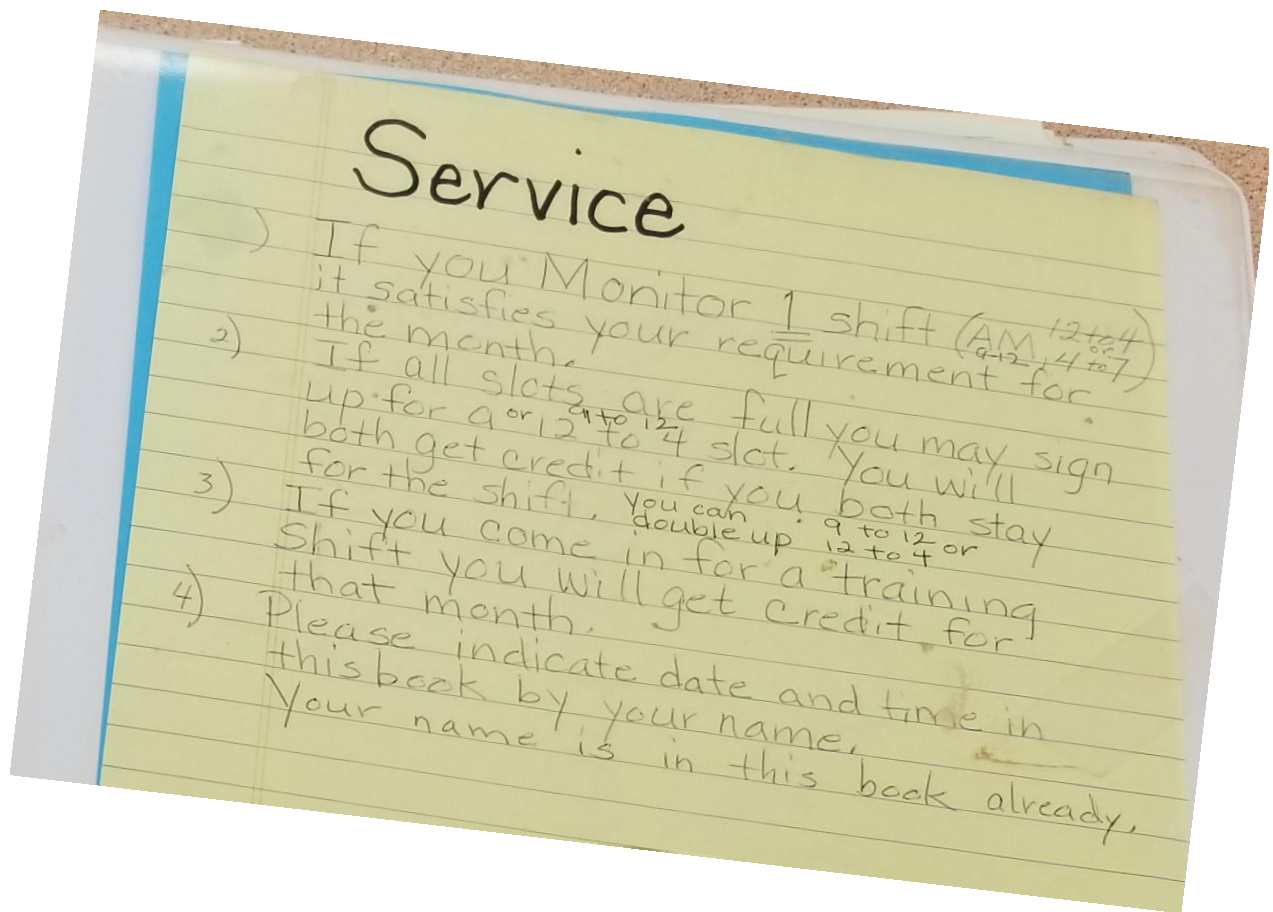 Service
1) If you Monitor 1 shift (AM 9-12 12 to 4 or 4 to 7)
it satisfies your requirement for
the month.
2) If all slots are full you may sign
up for 9 to 12 or 12 to 4 slot. You will
both get credit if you both stay
for the shift. You can double up 9 to 12 or 12 to 4
3) If you come in for a training
Shift you will get credit for
that month.
4) Please indicate date and time in
this book by your name.
Your name is in this book already.